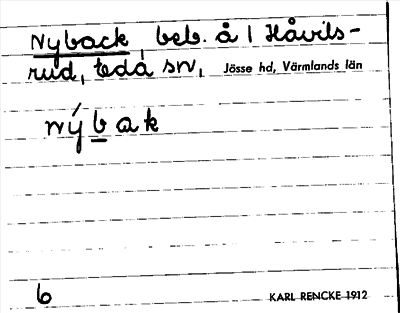 Nyback, beb. å 1 Håvils-
rud, Eda sn, Jösse hd, Värmlands län
nýbak
6
KARL RENCKE 1912